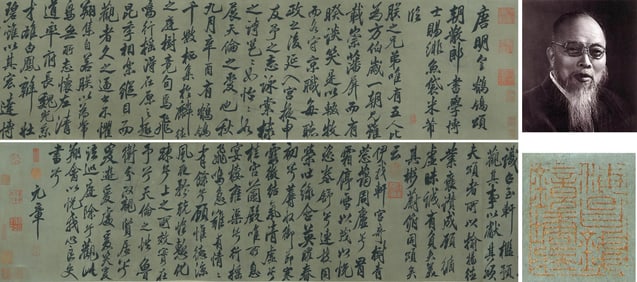 唐明皇鶺鴒頌
朝散郎書學博
士賜緋魚袋米芾
臨
朕之兄弟唯有五人比
為方伯歲一朝見雖
載崇藩屏而有
睽談笑是以輟牧
人而各守京職每聽
政之後延入宮掖申
友于之志詠棠棣
之詩邕邕如怡怡如
展天倫之愛也秋
九月辛酉有鶺鴒
千數棲集於麟德
之庭樹竟旬焉飛
鳴行搖得在原之趣
昆季相樂縱目而
觀者久之逼之不懼
翔集自若朕以常
鳥無所志懷左清
道率府長史魏光乘
才雄白鳳辯壯
碧雞以其宏達博
識召至軒楹預
觀其事以獻其頌
夫頌者所以揄揚德
業褒讚成功顧循
虛昧誠有負矣美
其彬蔚俯同頌
云
伊我軒宮奇樹青
蔥藹周廬兮冒
霜停雪以茂以悅
恣卷舒兮連枝同
榮吐綠含英曜春
初兮蓐收御節寒
露微結氣清虛兮
桂宮蘭殿唯所息
宴棲雍渠兮行搖
飛鳴急難有情情
有餘兮顧惟德涼
夙夜兢惶慚化
踈兮上之所教下之所效實在
予兮天倫之性魯
衛分政親賢居兮
爰遊爰處爰笑爰
語巡庭除兮觀此
翔禽以悅我心良史
書兮
元章